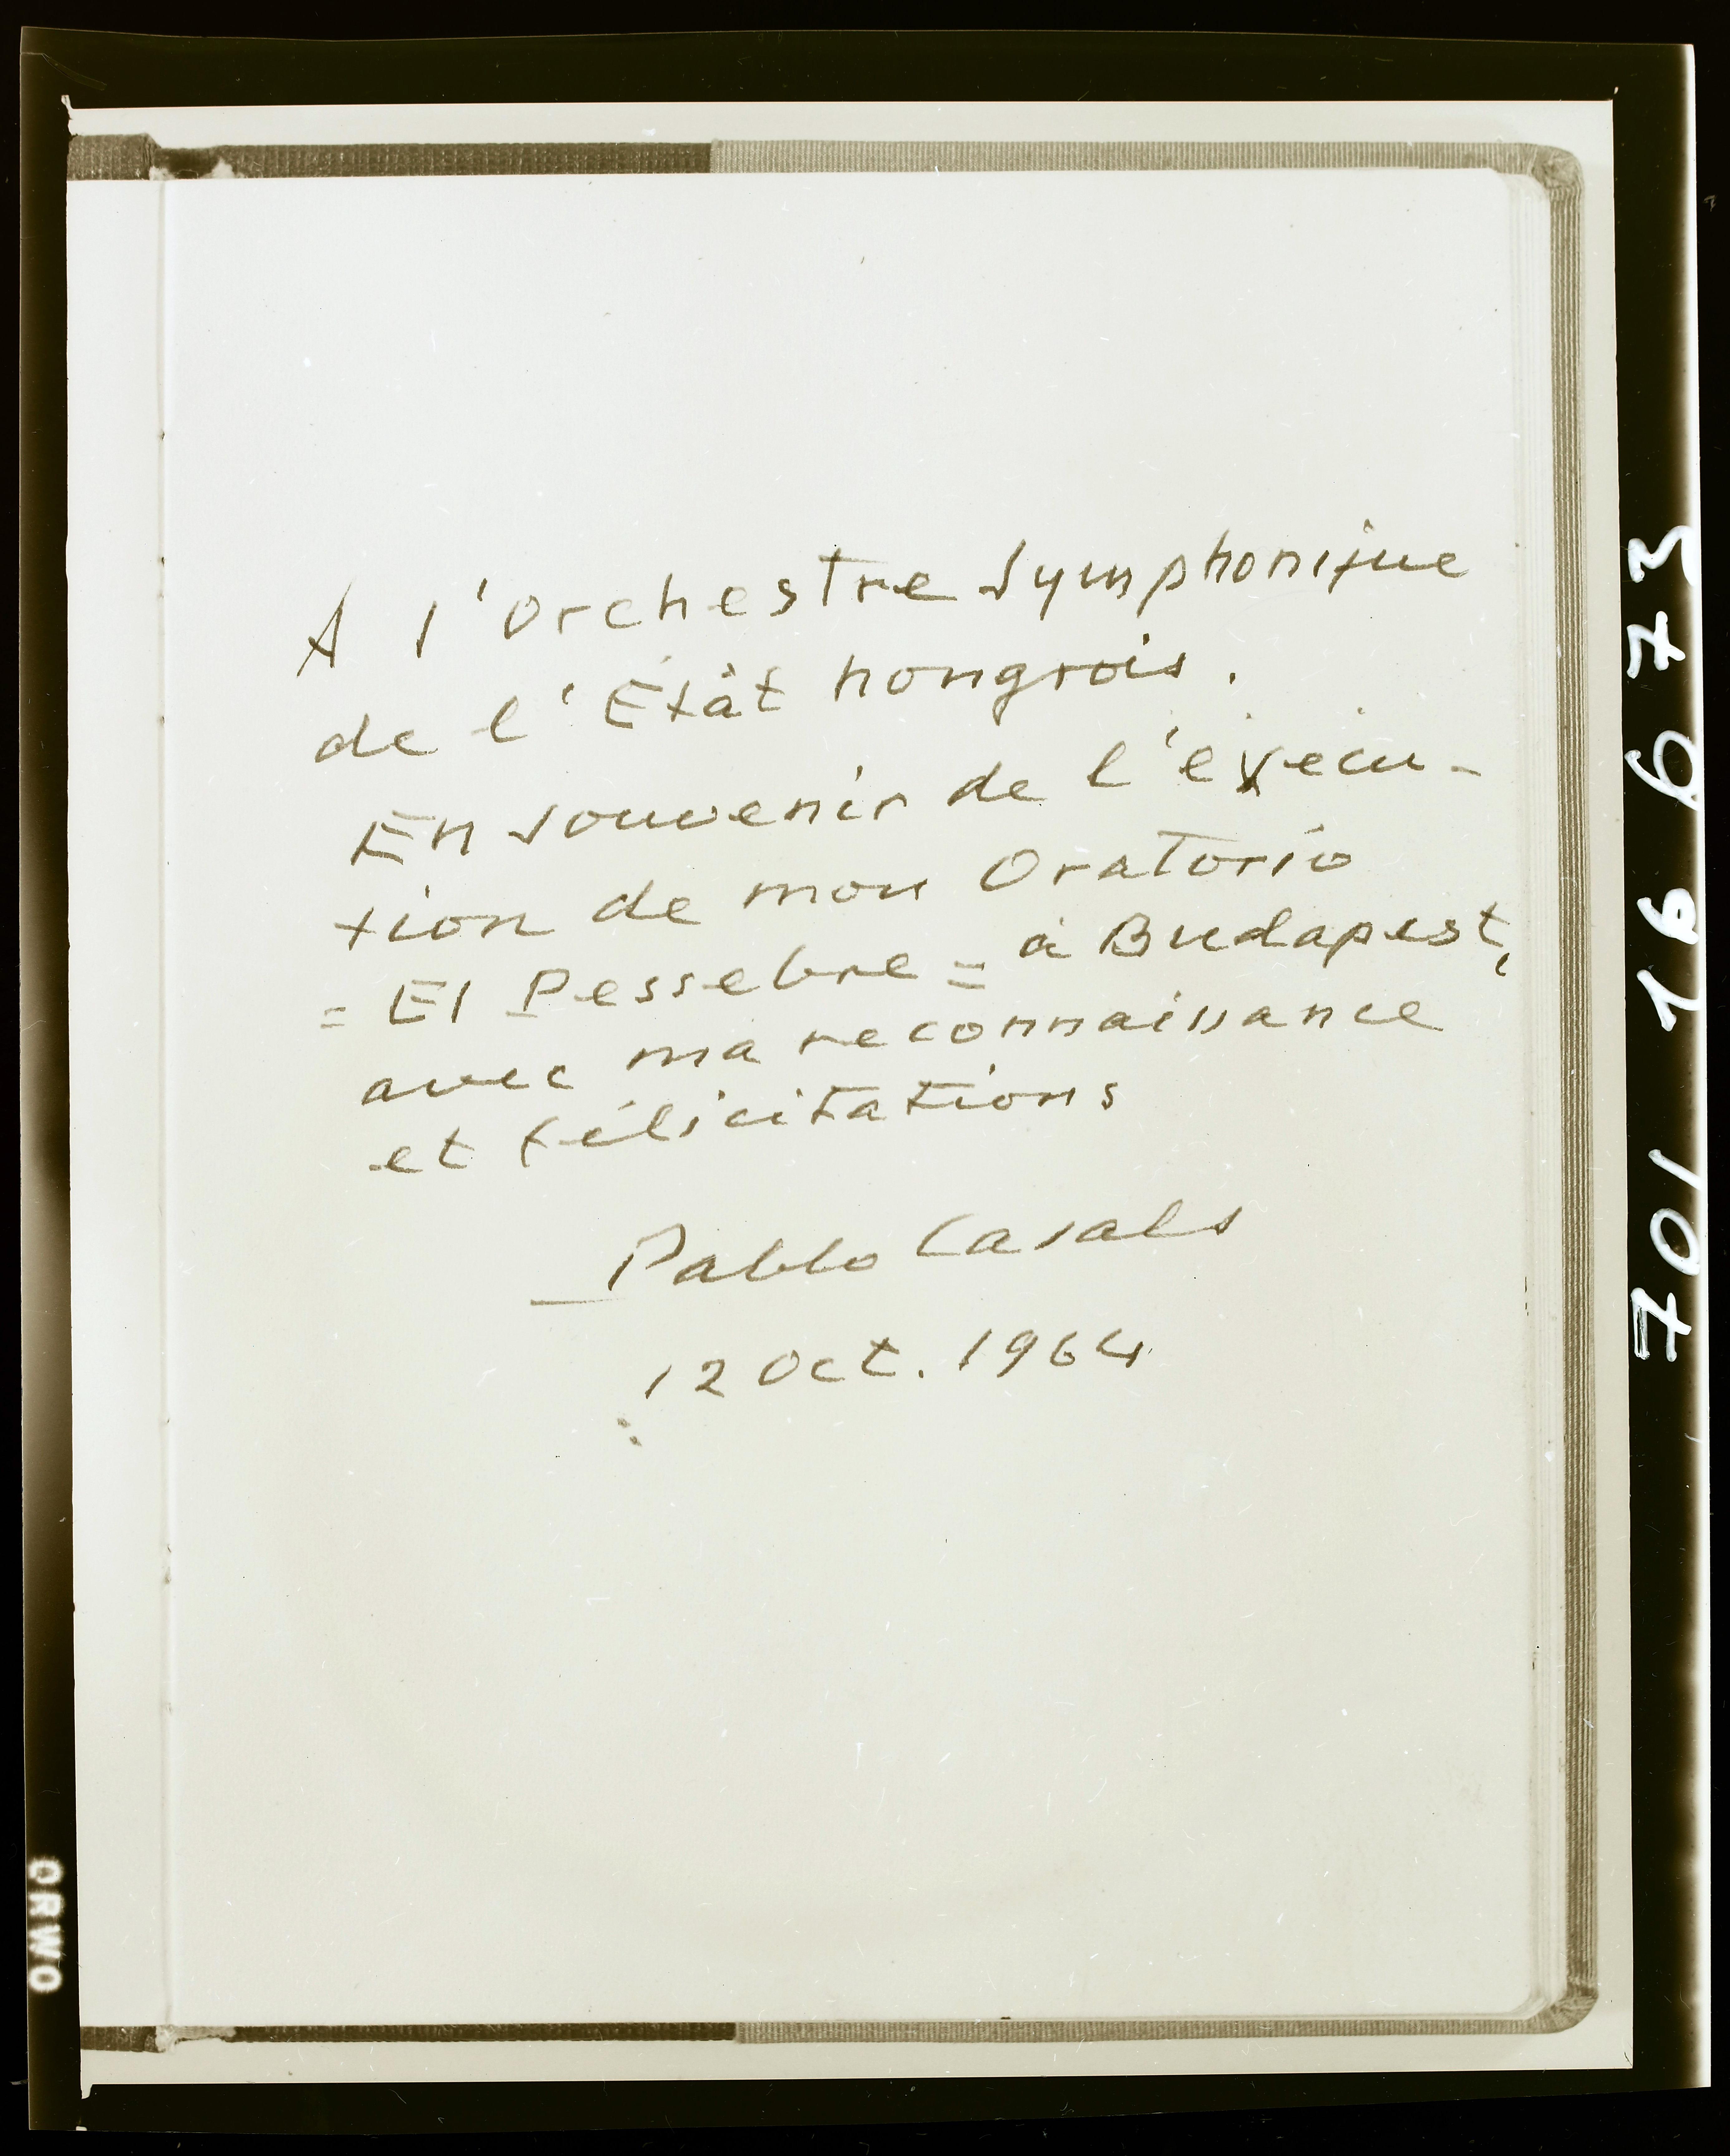 A l'Orchestre Symphonique
de l'Étât hongrois.
En souvenir de l'éxécu-
tion de mon Oratorio
= El Pessebre = à Budapest,
avec ma reconnaissance
et félicitations
Pablo Casals
12 Oct. 1964
701 16673
ORWO